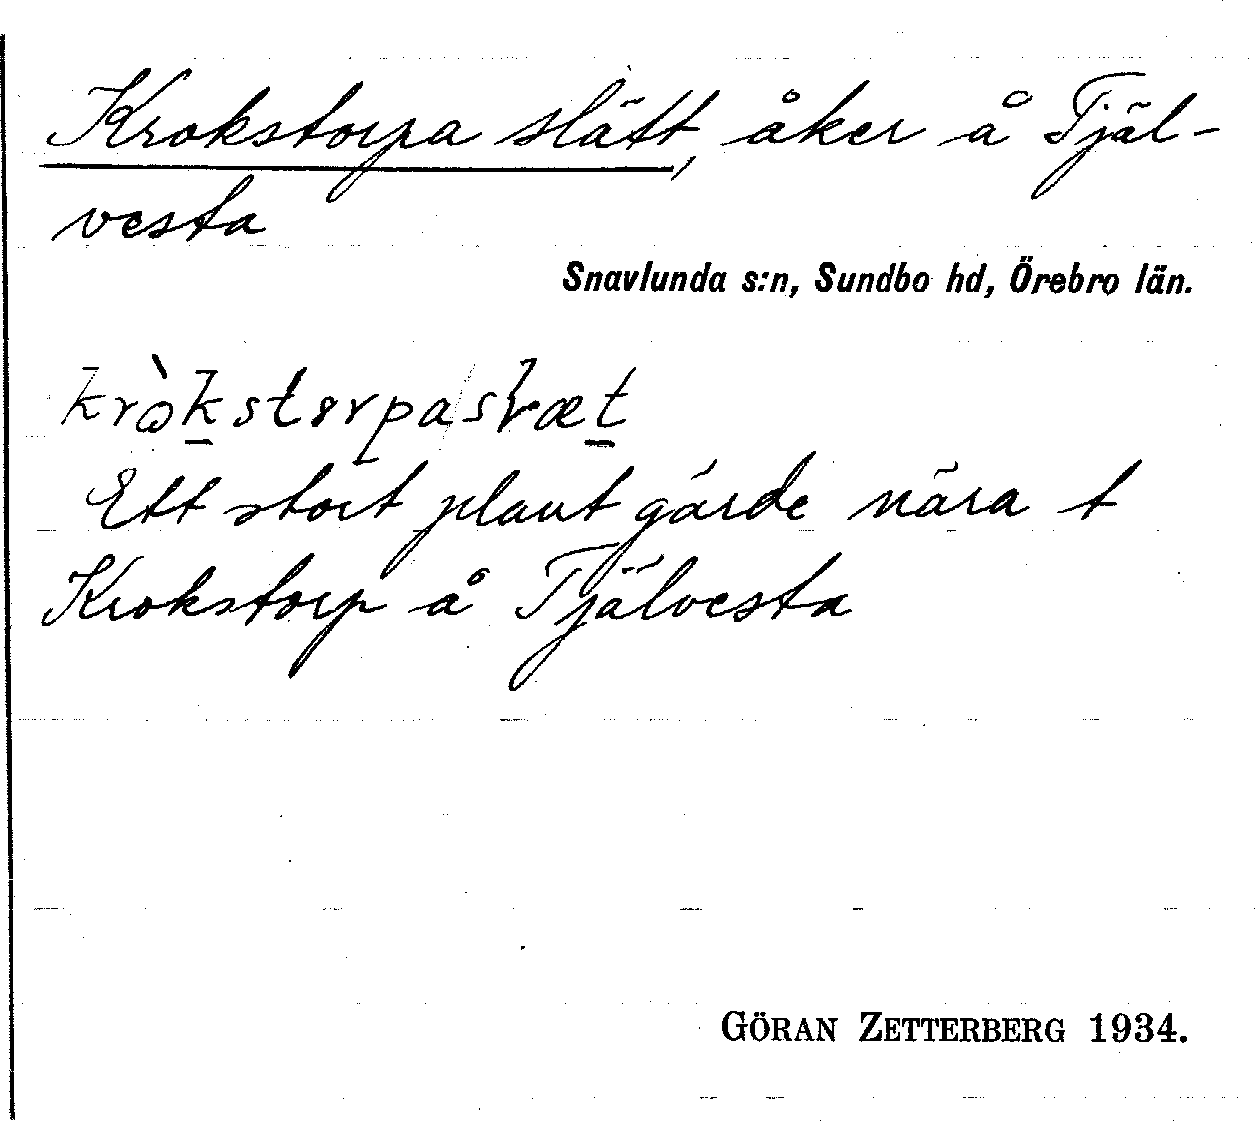 Krokstorpa slätt, åker å Tjäl-
vesta
Snavlunda s:n, Sundbo hd, Örebro län.
Ett stort plant gärde nära t
Krokstorp å Tjälvesta
GÖRAN ZETTERBERG 1934.